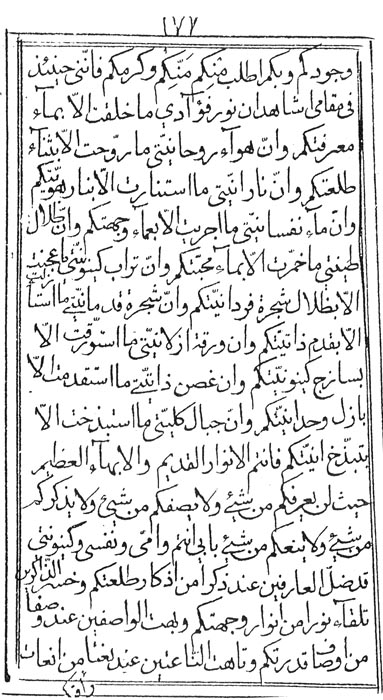 ١٧٧
وجودكم وبكم اطلب منكم منّكم وكرمكم فانّنی حینئذ
فی مقامی اشاهد ان نور فؤآدی ما خلقت الا بمآء
معرفتکم وانّ هوآء روحانیتی ما روّحت الا بثنآء
طلعتکم وانّ نار انیّتی ما استنارت الا بنار هویّتکم
وانّ مآء نفسانیتی ما اجریت الا بعمآء وجهتکم وان ظلال
طینتی ما خمّرت الا بمآء محبّتکم وانّ تراب کینونیّتی ما عجنت
الا بظلال شجرة فردانیّتکم وان شجرة قدمانیّتی ما
الا بقدم ذاتیّتکم وان ورقة ازلانیتی ما استورقت الا
بسازج کینونیّتکم وان غصن ذاتیّتی ما استقدمت الا
بازل وحدانیتکم وانّ جبال کلیتی ما استبذخت الا
بتبذّخ انیّتکم فانتم الانوار القدیم والابهآء العظیم
حیث لن یعرفکم من شیئ ولا یصفکم من شیئ ولا یذکرکم
من شیئ ولا ینعکم من شیئ بابی انتم وامی ونفسی وکینونتی
قد ضلّ العارفین عند ذکرا من اذکار طلعتکم وخسر الذاکرین
تلقآء نورا من انوار وجهتکم وبهت الواصفین عند وصفا
من اوصاف قدرتکم وتاهت الناعتین عند نعتا من انعات